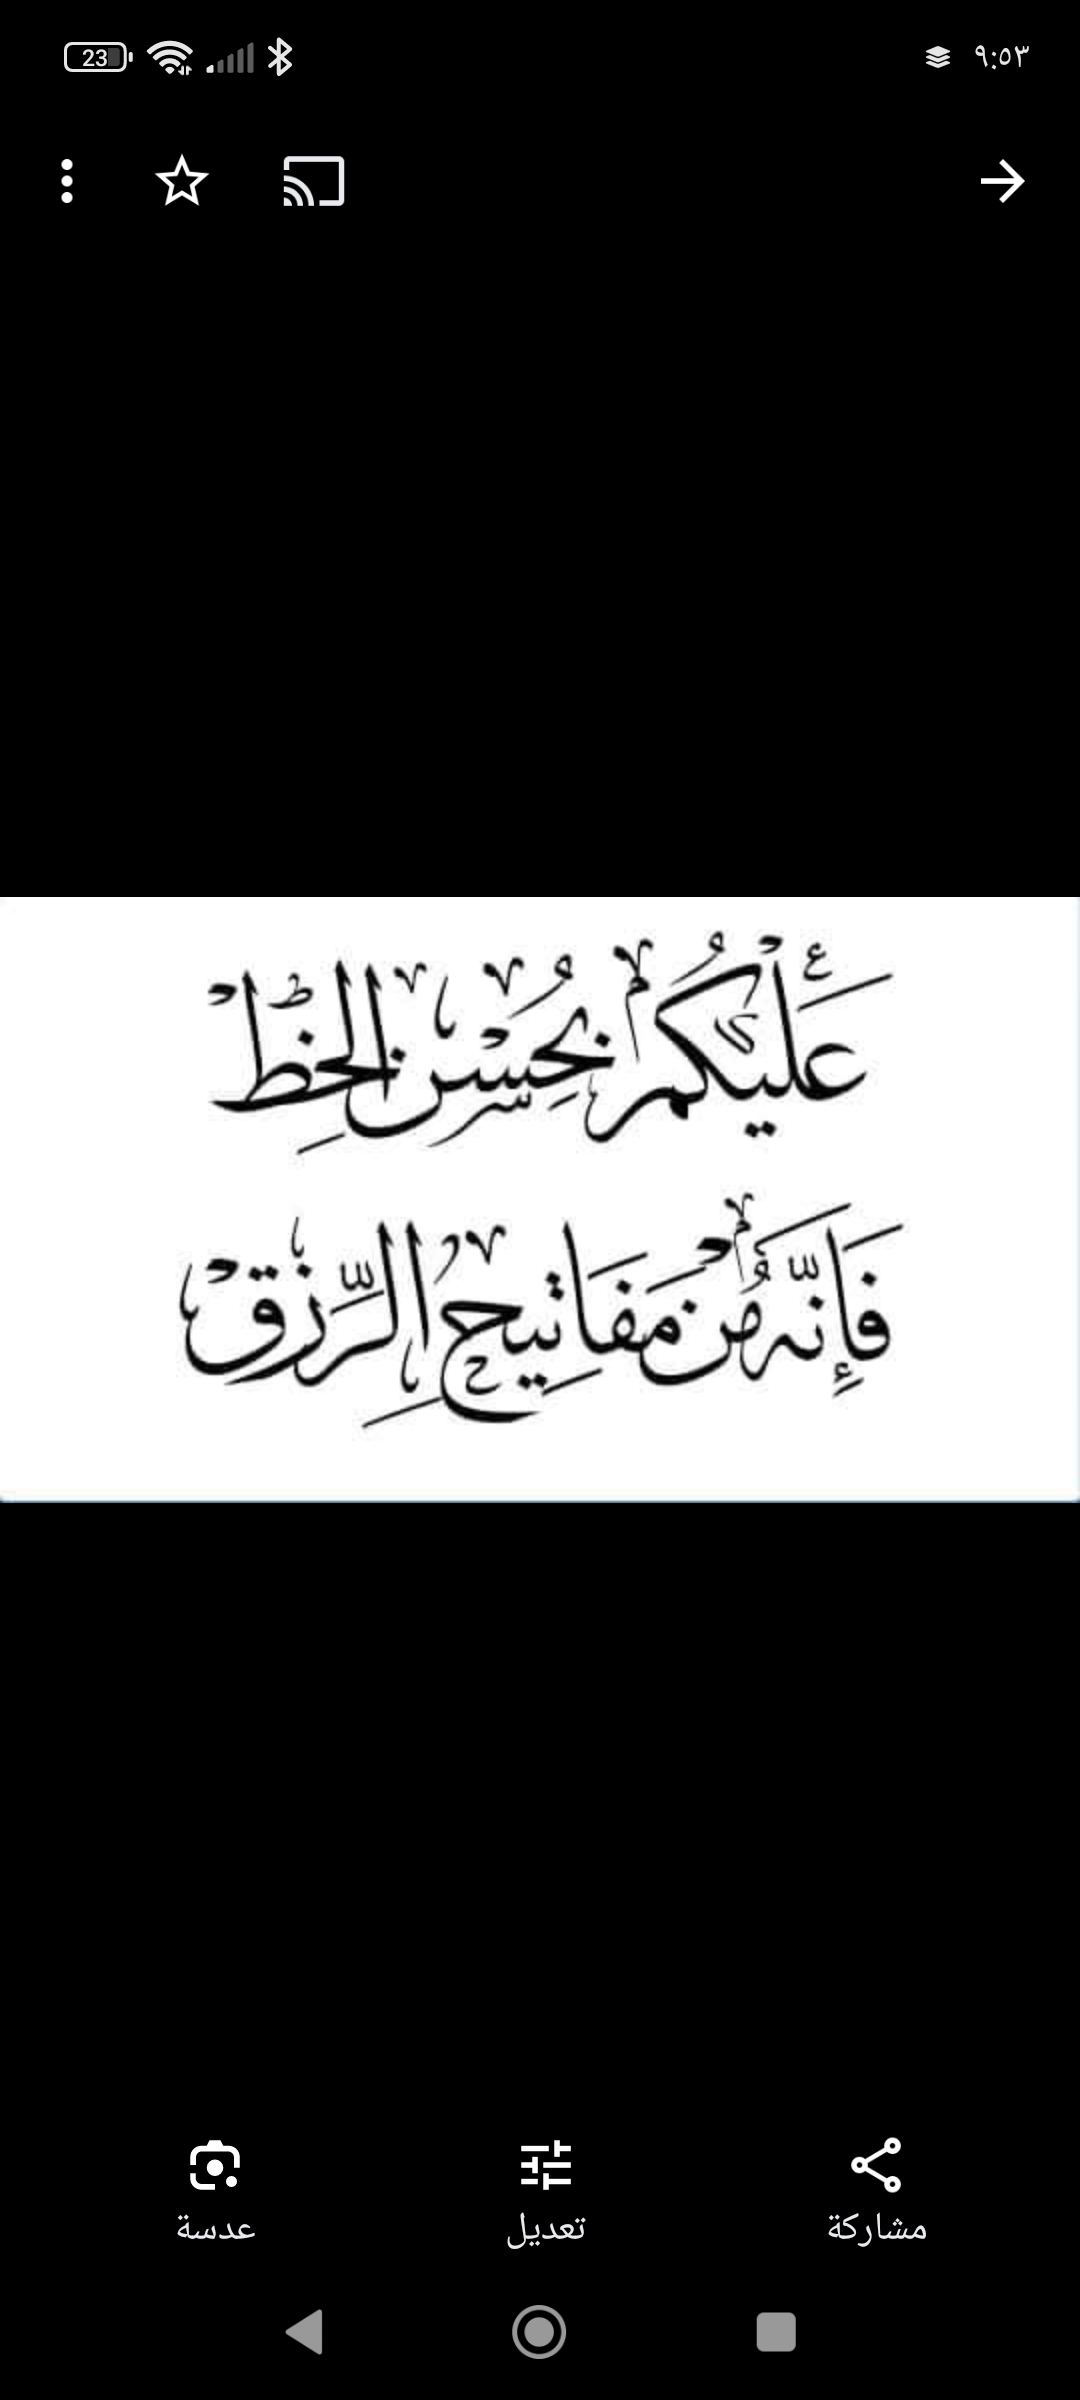 23
٩:٥٣
عَلَيْكُمْ بِحُسْنِ الخَظِّ
فَإِنَّهُ مِنْ مَفَاتِيحِ الرِّزْقِ
مشاركة
تعديل
عدسة